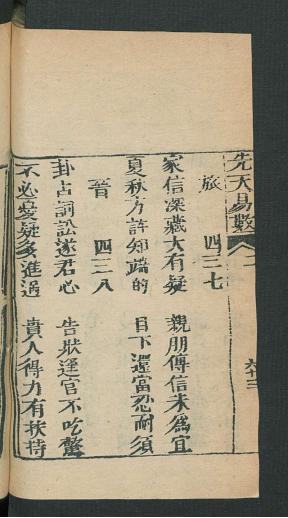 先天易數 二
旅 四三七
家信深藏大有疑 親朋傳信未爲宜
夏秋方許知踪的 目下還當忍耐須
晉 四三八
卦占詞訟遂君心 告狀逢官不吃驚
不必憂疑多進退 貴人得力有扶持